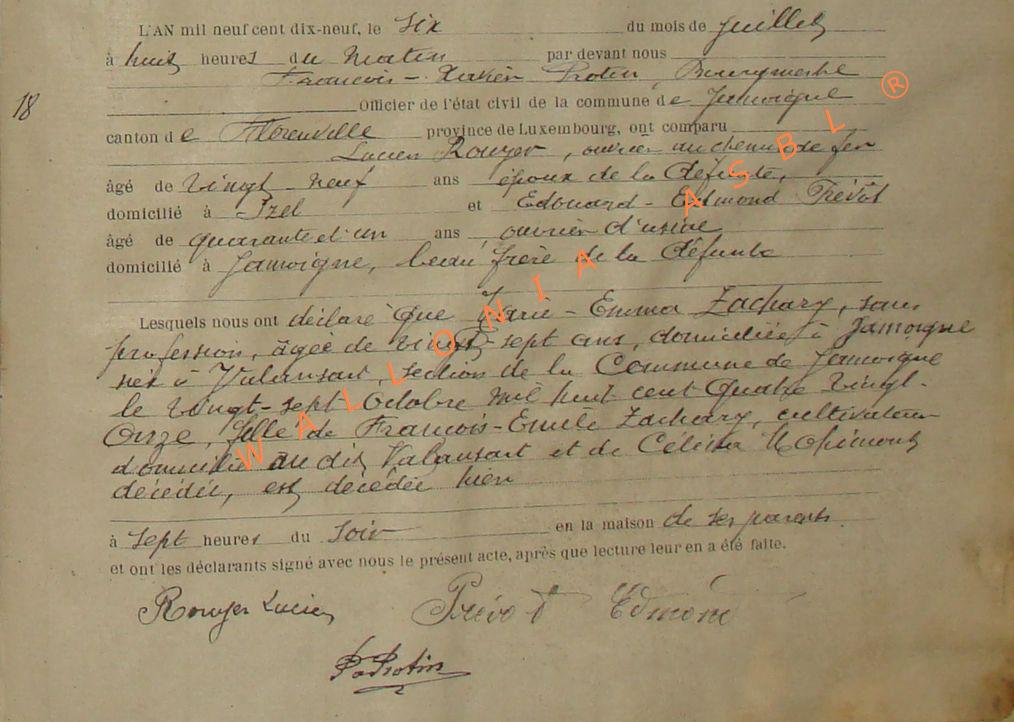 L'AN mil neuf cent dix-neuf, le six du mois de juillet
à huit heures du matin par devant nous
François-Xavier Protin, Bourgmestre
Officier de l'état civil de la commune de Jamoigne
18
canton de Florenville province de Luxembourg, ont comparu
Lucien Rouyer, ouvrier au chemin de fer
âgé de vingt-neuf ans époux de la défunte,
domicilié à Izel et Edouard-Edmond Prévôt
âgé de quarante et un ans, ouvrier d'usine
domicilié à Jamoigne, beau frère de la défunte
Lesquels nous ont déclaré que Marie-Emma Zachary, sans
profession, âgée de vingt-sept ans, domiciliée à Jamoigne
née à Valansart, section de la Commune de Jamoigne
le vingt-sept Octobre mil huit cent quatre vingt-
Onze, fille de François-Emile Zachary, cultivateur
domicilié au dit Valansart et de Célina
décédée, est décédée hier
à sept heures du soir en la maison de ses parents.
et ont les déclarants signé avec nous le présent acte, après que lecture leur en a été faite.
Rouyer Lucien Prévot Edmond
Protin
WALLONIA ASBL ®